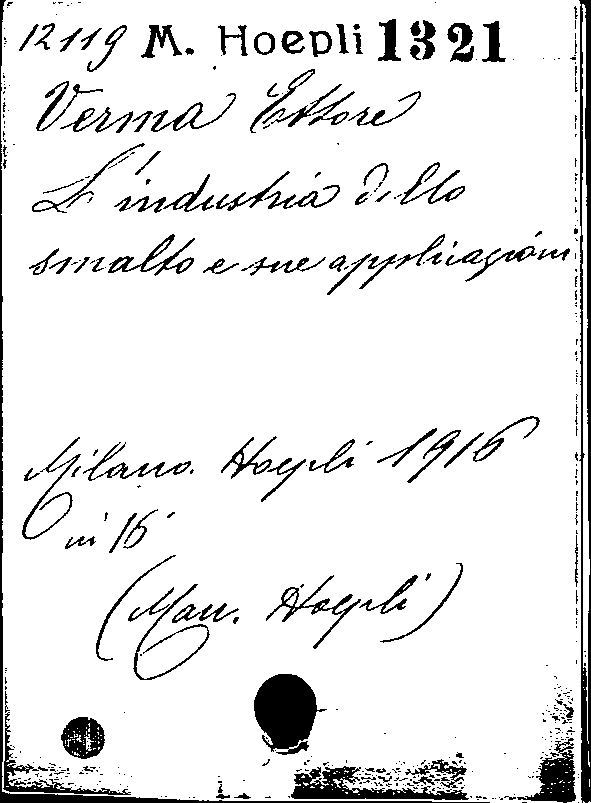 12119 M. Hoepli 1321
Verma Ettore
L'industria dello
smalto e sue applicazioni
Milano. Hoepli 1916
in 16°
(Man. Hoepli)